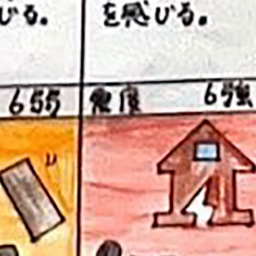 じる。
を感じる。
655
震度 6強